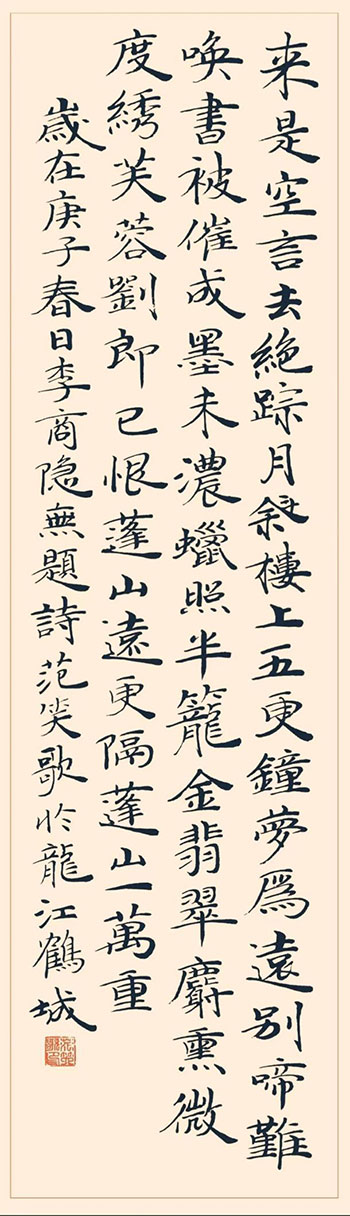 来是空言去絶踪月斜樓上五更鐘夢爲遠别啼難
唤書被催成墨未濃蠟照半籠金翡翠麝熏微
度綉芙蓉劉郎已恨蓬山遠更隔蓬山一萬重
歲在庚子春日李商隐無題詩范笑歌於龍江鶴城